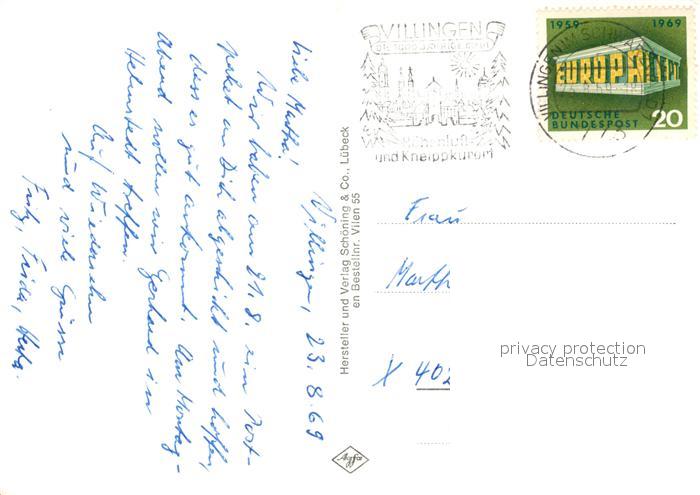 Villingen, 23.8.69
Liebe Martha!
Wir haben am 21.8. ein Post-
paket an Dich abgeschickt und hoffen,
dass es gut ankommt. Am Montag-
abend wollen wir Gerhard in
Helmstedt treffen.
Auf Wiedersehn
und viele Grüsse
Fritz, Frida,
Hersteller und Verlag Schöning & Co., Lübeck
en Bestellnr. Vilen 55
Agfa
VILLINGEN
und Kneippkurort
1959 1969
EUROPA CEPT
DEUTSCHE
BUNDESPOST 20
VILLINGEN IM SCHW
Frau
Marth
X 402
privacy protection
Datenschutz